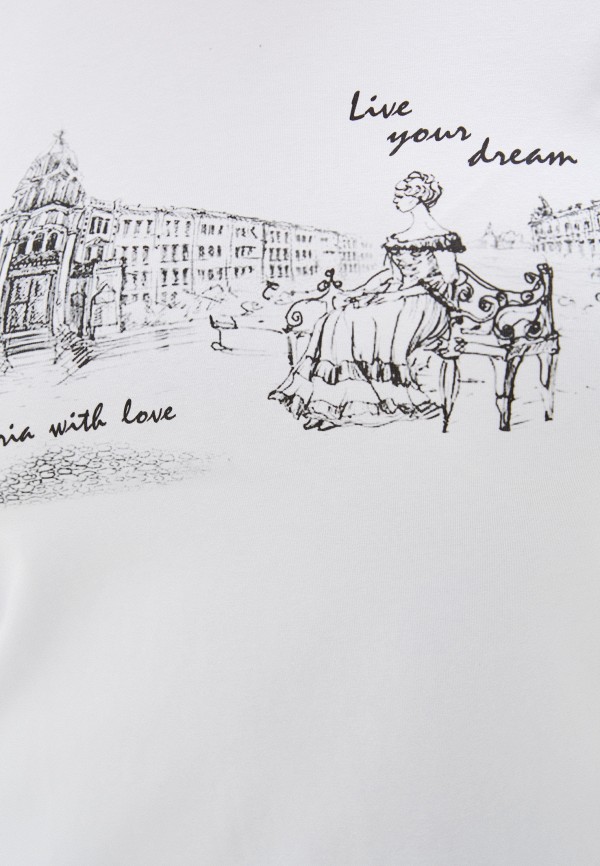 Live
your
dream
with love